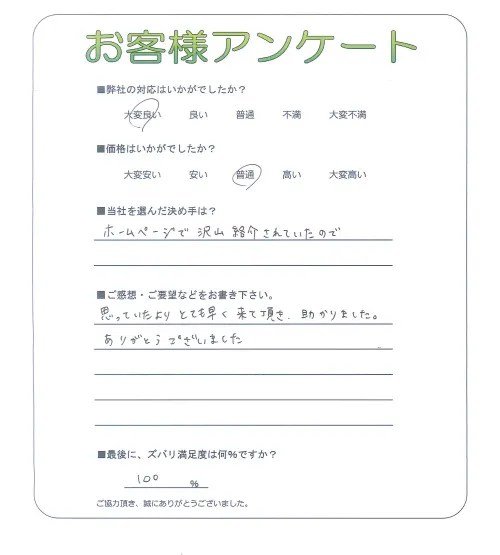 お客様アンケート
■弊社の対応はいかがでしたか？
大変良い 良い 普通 不満 大変不満
■価格はいかがでしたか？
大変安い 安い 普通 高い 大変高い
■当社を選んだ決め手は？
ホームページで沢山紹介されていたので
■ご感想・ご要望などをお書き下さい。
思っていたよりとても早く来て頂き、助かりました。
ありがとうございました
■最後に、ズバリ満足度は何%ですか？
100 %
ご協力頂き、誠にありがとうございました。